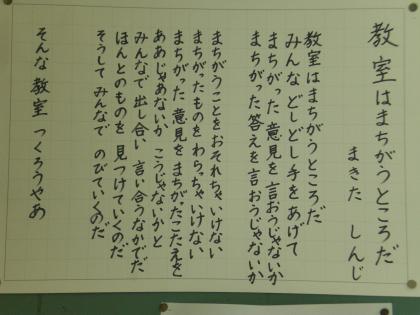 教室はまちがうところだ
まきた しんじ
教室はまちがうところだ
みんな どしどし手をあげて
まちがった意見を 言おうじゃないか
まちがった答えを 言おうじゃないか
まちがうことを おそれちゃいけない
まちがったものを わらっちゃいけない
まちがった意見を まちがったこたえを
ああじゃあないか こうじゃないかと
みんなで出し合い 言い合うなかでだ
ほんとのものを 見つけていくのだ
そうして みんなで のびていくのだ
そんな 教室 つくろうやあ